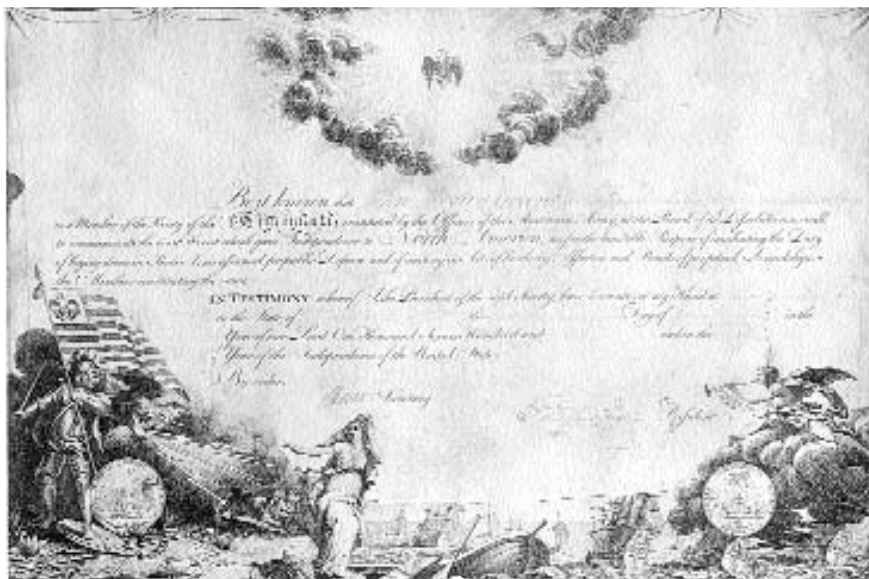 Be it known that
is a Member of the Society of the Cincinnati; instituted by the Officers of the American Army, at the Period of its Dissolution, as well
to commemorate the great Event which gave Independence to North America, as for the laudable Purpose of inculcating the Duty
of laying down in Peace Arms assumed for public Defence, and of uniting in Acts of brotherly Affection and Bonds of perpetual Friendship
the Members constituting the same.
IN TESTIMONY whereof I, the President of the said Society, have hereunto set my Hand at
in the State of Day of in the
Year of our Lord One Thousand Seven Hundred and and in the
Year of the Independence of the United States.
By order,
Secretary
President